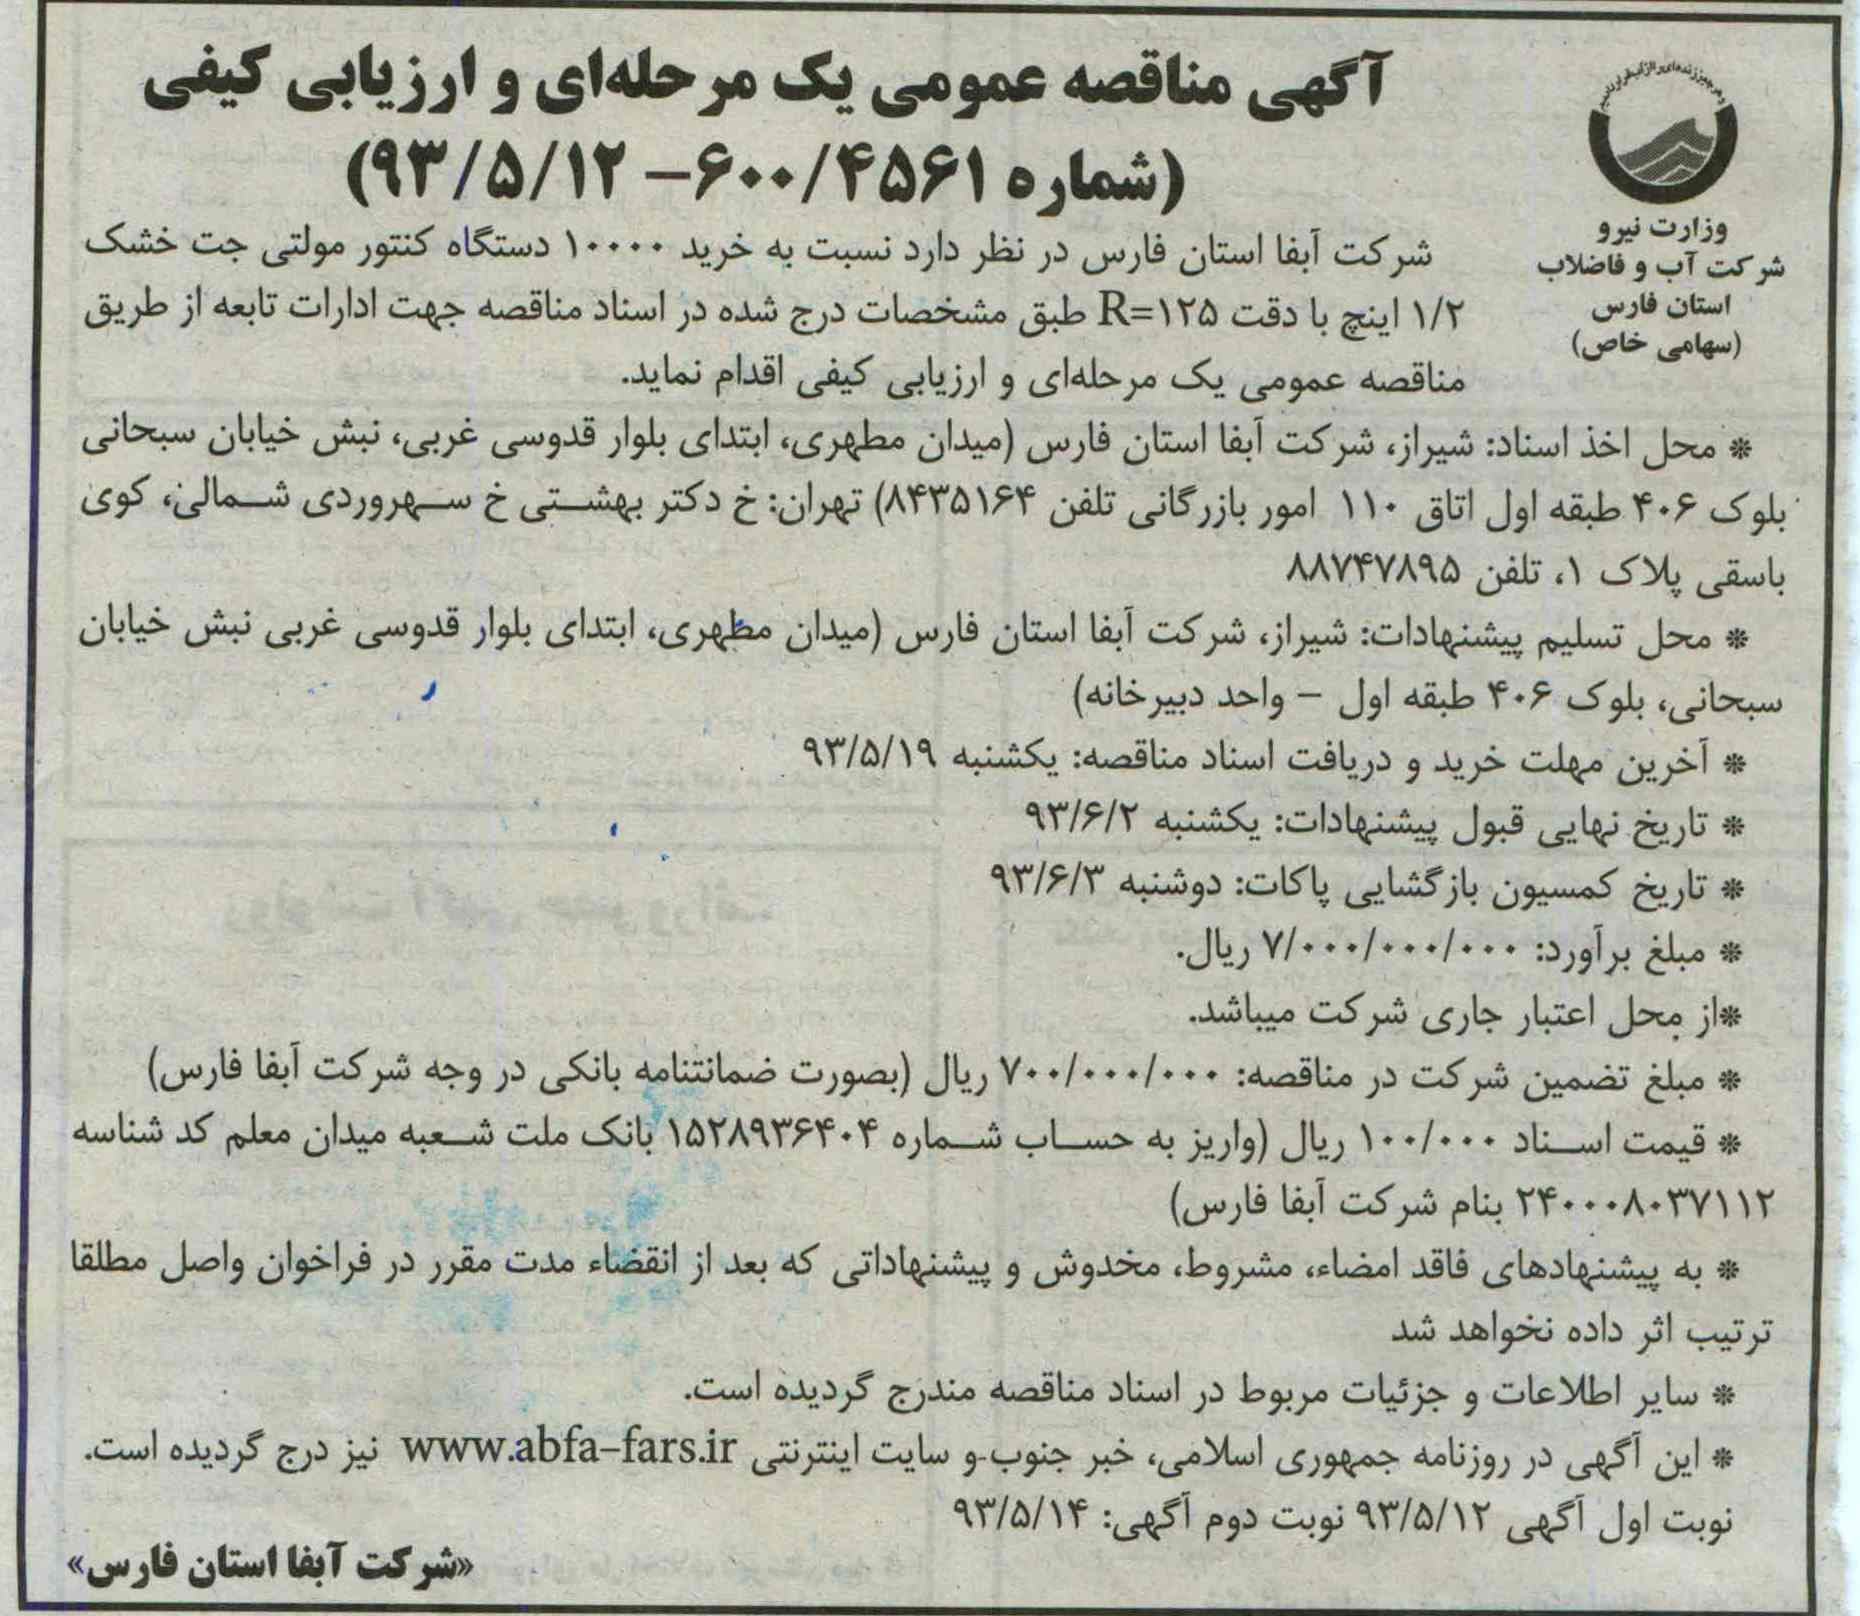 آگهی مناقصه عمومی یک مرحله‌ای و ارزیابی کیفی
(شماره ۶۰۰/۴۵۶۱– ۹۳/۵/۱۲)
وزارت نیرو
شرکت آب و فاضلاب
استان فارس
(سهامی خاص)
شرکت آبفا استان فارس در نظر دارد نسبت به خرید ۱۰۰۰۰ دستگاه کنتور مولتی جت خشک
۱/۲ اینچ با دقت R=۱۲۵ طبق مشخصات درج شده در اسناد مناقصه جهت ادارات تابعه از طریق
مناقصه عمومی یک مرحله‌ای و ارزیابی کیفی اقدام نماید.
* محل اخذ اسناد: شیراز، شرکت آبفا استان فارس (میدان مطهری، ابتدای بلوار قدوسی غربی، نبش خیابان سبحانی
بلوک ۴۰۶ طبقه اول اتاق ۱۱۰ امور بازرگانی تلفن ۸۴۳۵۱۶۴) تهران: خ دکتر بهشتی خ سهروردی شمالی، کوی
باسقی پلاک ۱، تلفن ۸۸۷۴۷۸۹۵
* محل تسلیم پیشنهادات: شیراز، شرکت آبفا استان فارس (میدان مطهری، ابتدای بلوار قدوسی غربی نبش خیابان
سبحانی، بلوک ۴۰۶ طبقه اول – واحد دبیرخانه)
* آخرین مهلت خرید و دریافت اسناد مناقصه: یکشنبه ۹۳/۵/۱۹
* تاریخ نهایی قبول پیشنهادات: یکشنبه ۹۳/۶/۲
* تاریخ کمسیون بازگشایی پاکات: دوشنبه ۹۳/۶/۳
* مبلغ برآورد: ۷/۰۰۰/۰۰۰/۰۰۰ ریال.
*از محل اعتبار جاری شرکت میباشد.
* مبلغ تضمین شرکت در مناقصه: ۷۰۰/۰۰۰/۰۰۰ ریال (بصورت ضمانتنامه بانکی در وجه شرکت آبفا فارس)
* قیمت اسناد ۱۰۰/۰۰۰ ریال (واریز به حساب شماره ۱۵۲۸۹۳۶۴۰۴ بانک ملت شعبه میدان معلم کد شناسه
۲۴۰۰۰۸۰۳۷۱۱۲ بنام شرکت آبفا فارس)
* به پیشنهادهای فاقد امضاء، مشروط، مخدوش و پیشنهاداتی که بعد از انقضاء مدت مقرر در فراخوان واصل مطلقا
ترتیب اثر داده نخواهد شد
* سایر اطلاعات و جزئیات مربوط در اسناد مناقصه مندرج گردیده است.
* این آگهی در روزنامه جمهوری اسلامی، خبر جنوب و سایت اینترنتی www.abfa-fars.ir نیز درج گردیده است.
نوبت اول آگهی ۹۳/۵/۱۲ نوبت دوم آگهی: ۹۳/۵/۱۴
«شرکت آبفا استان فارس»